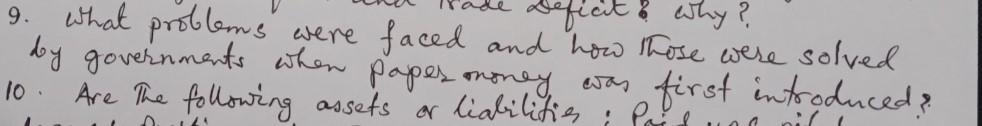 Trade Deficit & Why?
9. What problems were faced and how those were solved
by governments when paper money was first introduced?
10. Are The following assets or liabilities :